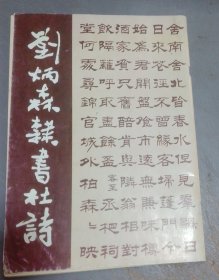 舍南舍北皆春水但見羣鷗日
日來花徑不曾緣客掃蓬門今
始為君開盤飧市遠無兼味樽
酒家貧只舊醅肯與鄰翁相對
飲隔籬呼取盡餘杯 客至 丞相祠
堂何處尋錦官城外柏森〻映
劉炳森隸書杜詩